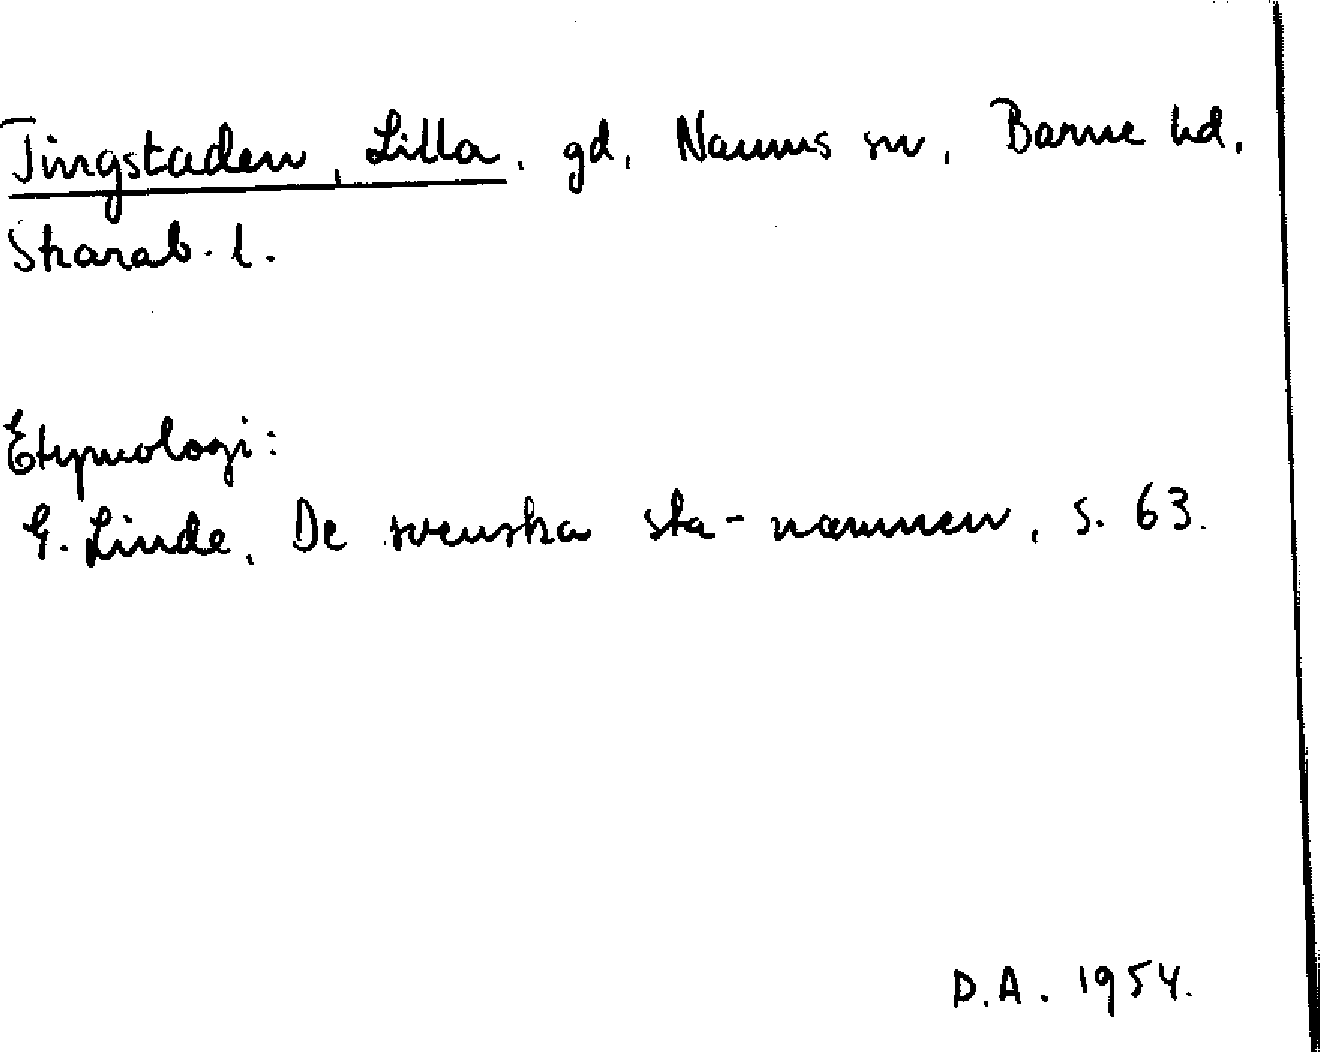 Tingstaden, Lilla, gd, Naums sn, Barne hd,
Skarab. l.
Etymologi:
G. Linde, De svenska sta-namnen, s. 63.
D.A. 1954.